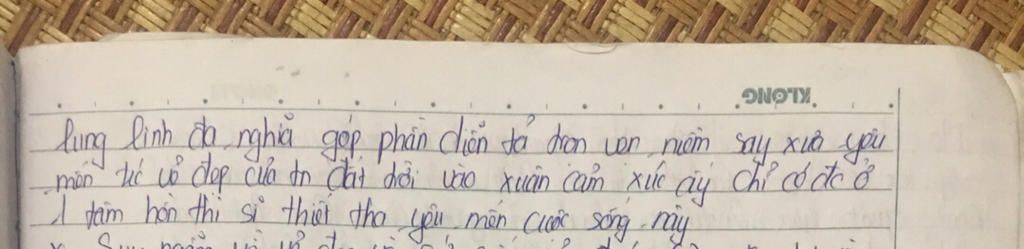 KLONG
lung linh đa nghĩa góp phần diễn tả trọn vẹn niềm say xưa yêu
mến trc vẻ đẹp của tn đất trời vào xuân cảm xúc ấy chỉ có đc ở
1 tâm hồn thi sĩ thiết tha yêu mến cuộc sống này